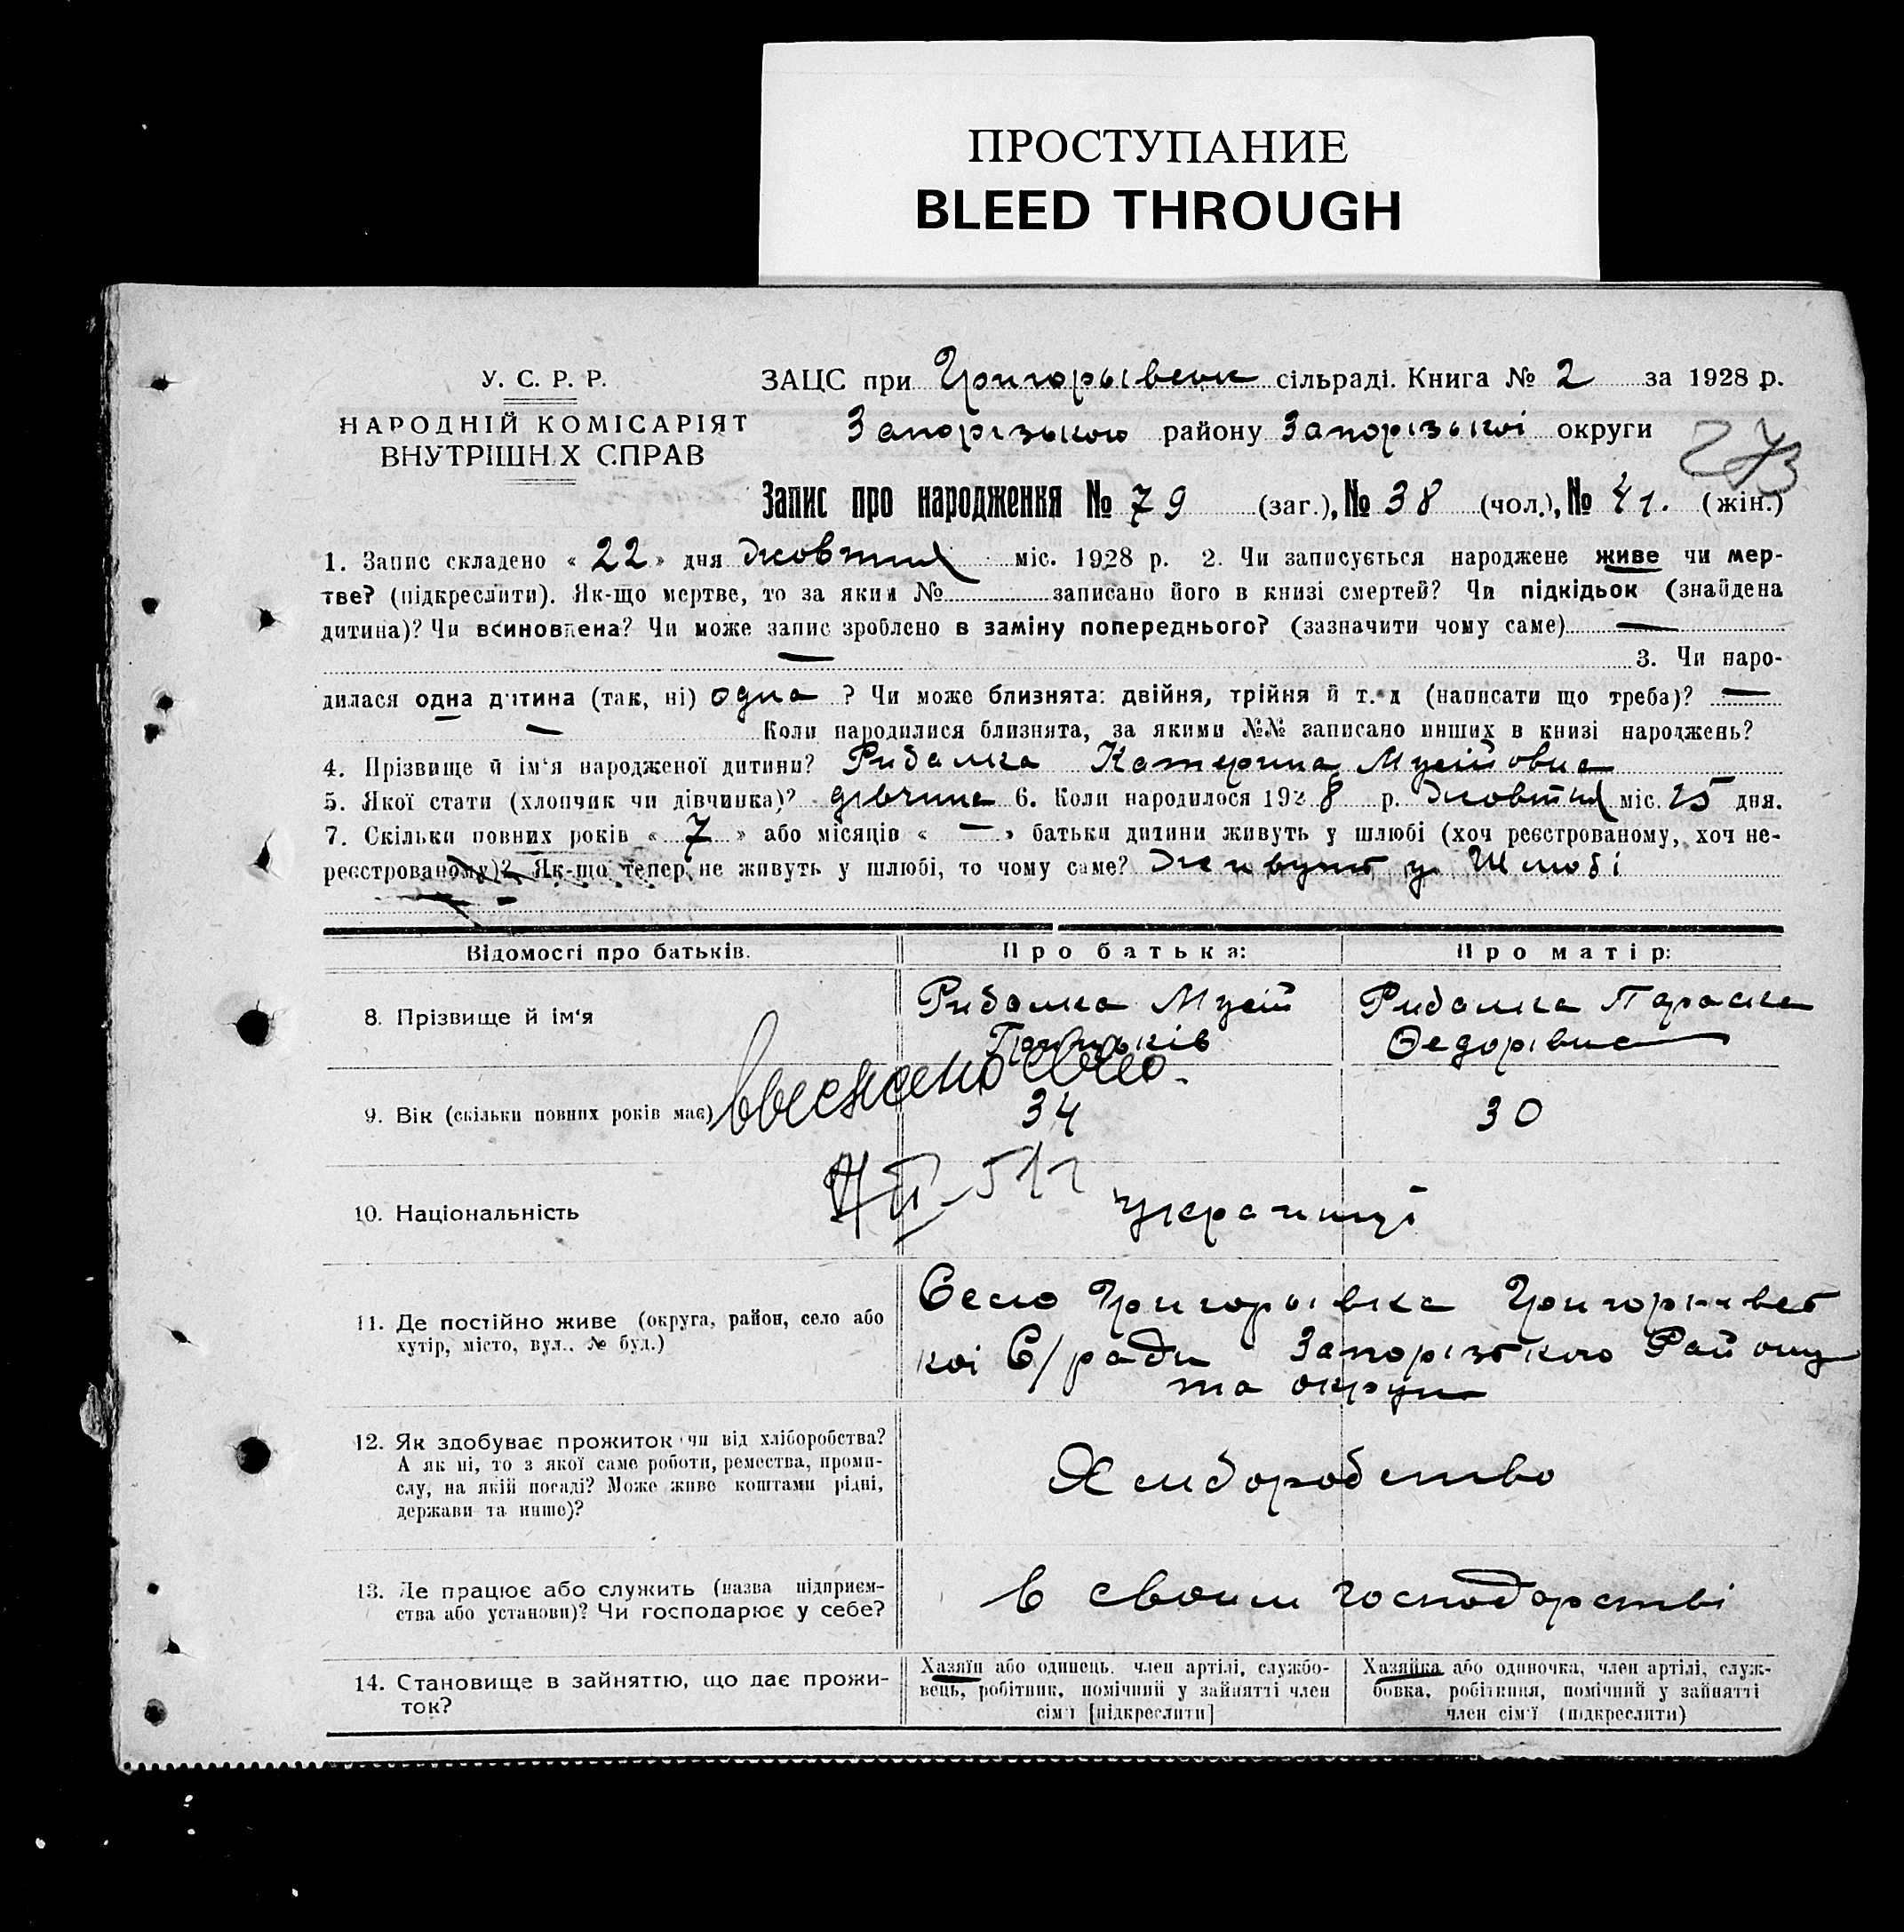 ПРОСТУПАНИЕ
BLEED THROUGH
У. С. Р. Р.
НАРОДНІЙ КОМІСАРІЯТ
ВНУТРІШНІХ СПРАВ
ЗАЦС при Григорывськ сільраді. Книга № 2 за 1928 р.
Запорізького району Запорізькоі округи
273
Запис про народження № 79 (заг.), № 38 (чол.), № 41. (жін.)
1. Запис складено « 22 » дня жовтня міс. 1928 р. 2. Чи записується народжене живе чи мер-
тве? (підкреслити). Як-що мертве, то за яким № записано його в книзі смертей? Чи підкідьок (знайдена
дитина)? Чи всиновлена? Чи може запис зроблено в заміну попереднього? (зазначити чому саме) —
— 3. Чи наро-
дилася одна дитина (так, ні) одна ? Чи може близнята: двійня, трійня й т. д (написати що треба)? —
— Коли народилися близнята, за якими №№ записано инших в книзі народжень?
4. Прізвище й ім'я народженої дитини? Рибалка Катерина Мусійовна
5. Якої стати (хлопчик чи дівчинка)? дівчина 6. Коли народилося 1928 р. жовтня міс. 15 дня.
7. Скільки повних років « 7 » або місяців « — » батьки дитини живуть у шлюбі (хоч реєстрованому, хоч не-
реєстрованому)? Як-що тепер не живуть у шлюбі, то чому саме? Живуть у Шлюбі
Відомості про батьків.
Про батька:
Про матір:
8. Прізвище й ім'я
Рибалка Мусій
Рибалка Параска
Федорівна
9. Вік (скільки повних років має)
34
30
10. Національність
українці
11. Де постійно живе (округа, район, село або
хутір, місто, вул., № буд.)
Село Григорывка Григорывсь
коі С/ради Запорізького Району
та округи
12. Як здобуває прожиток чи від хліборобства?
А як ні, то з якої саме роботи, ремества, проми-
слу, на якій посаді? Може живе коштами рідні,
держави та инше)?
Хлиборобство
13. Де працює або служить (назва підприєм-
ства або установи)? Чи господарює у себе?
в своим господарстві
14. Становище в зайняттю, що дає прожи-
ток?
Хазяїн або одинець, член артілі, службо-
вець, робітник, помічний у зайнятті член
сім'ї [підкреслити]
Хазяйка або одиночка, член артілі, служ-
бовка, робітниця, помічний у зайнятті
член сім'ї (підкреслити)